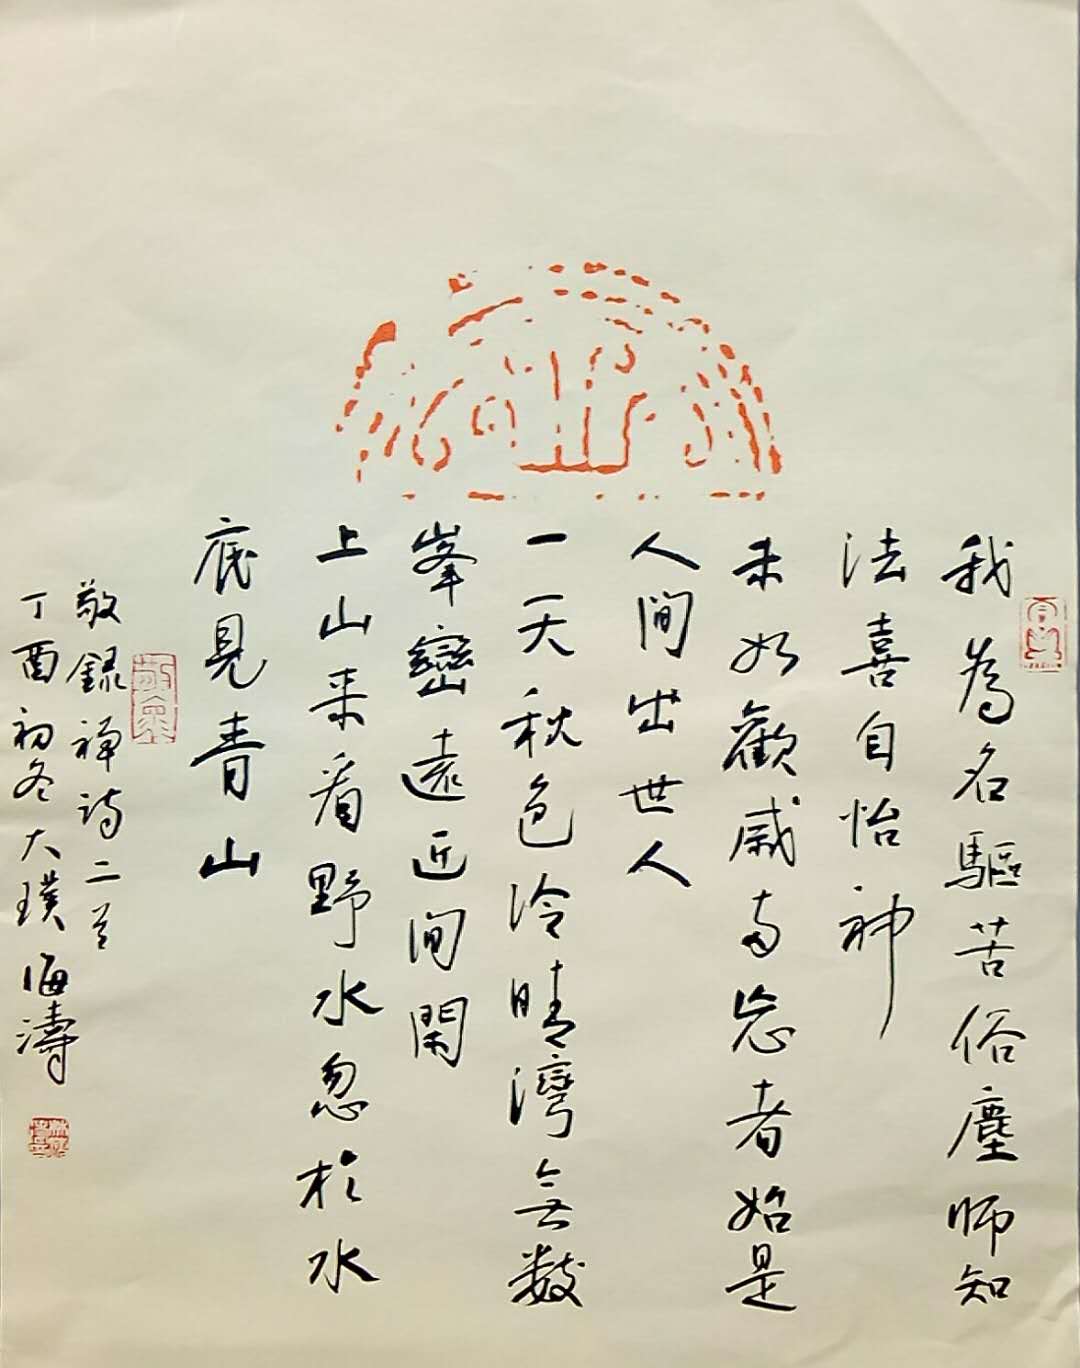 我為名驅苦俗塵師知
法喜自怡神
未如歡戚兩忘者始是
人間出世人
一天秋色冷晴灣無數
峯巒遠近間閑
上山来看野水忽於水
底見青山
敬錄禅詩二首
丁酉初冬大璞海濤